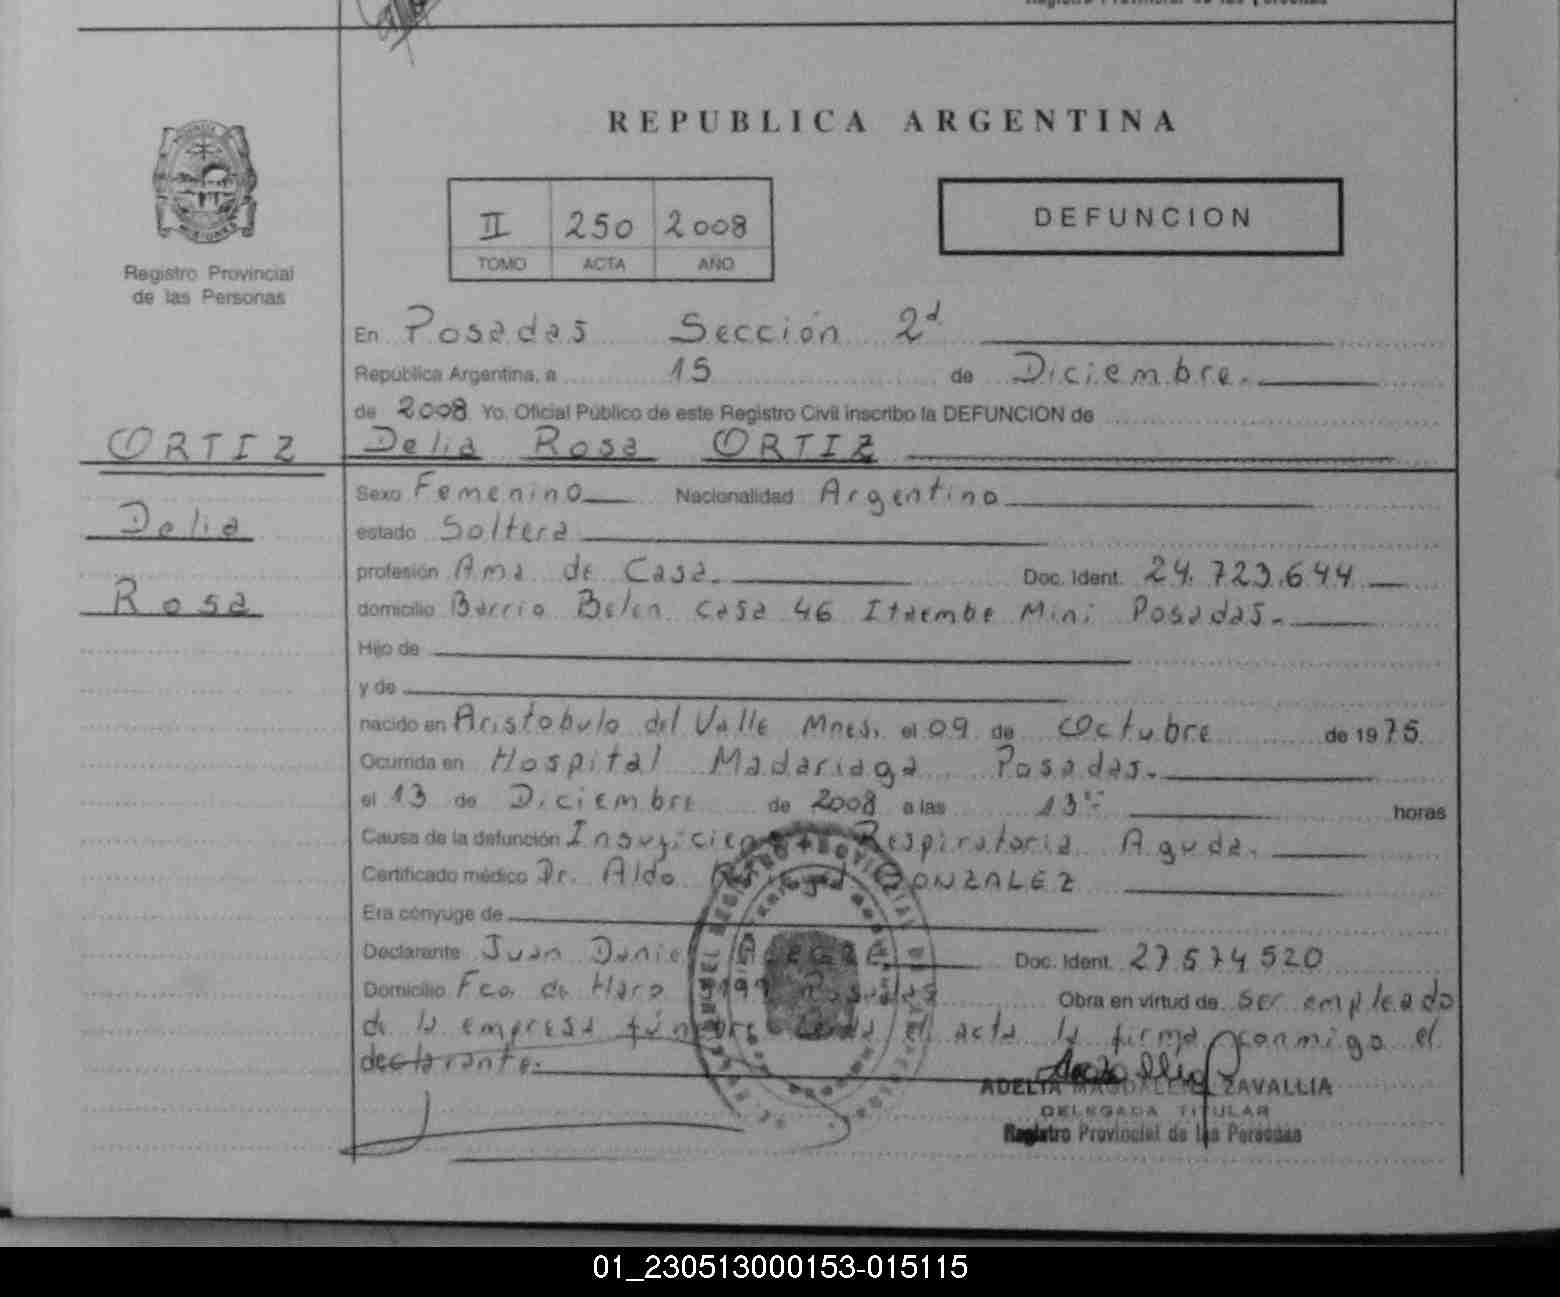 REPUBLICA ARGENTINA
Registro Provincial
de las Personas
II 250 2008
TOMO ACTA AÑO
DEFUNCION
En Posadas Sección 2ª
República Argentina, a 15 de Diciembre.
de 2008 Yo, Oficial Público de este Registro Civil inscribo la DEFUNCION de
ORTIZ Delia Rosa ORTIZ
Sexo Femenino Nacionalidad Argentina
Delia
estado Soltera
profesión Ama de Casa. Doc. Ident. 24.723.644
Rosa
domicilio Barrio Belen casa 46 Itaembe Mini Posadas.
Hijo de
y de
nacido en Aristobulo del Valle Mnes. el 09 de Octubre de 1975
Ocurrida en Hospital Madariaga Posadas.
el 13 de Diciembre de 2008 a las 13 horas
Causa de la defunción Insuficiencia Respiratoria Aguda.
Certificado médico Dr. Aldo GONZALEZ
Era cónyuge de
Declarante Juan Daniel Doc. Ident. 27574520
Domicilio Fco. de Haro Posadas Obra en virtud de ser empleado
de la empresa fúnebre acta la firma conmigo el
declarante.
ADELIA MAGDALENA ZAVALLIA
DELEGADA TITULAR
Registro Provincial de las Personas
01_230513000153-015115